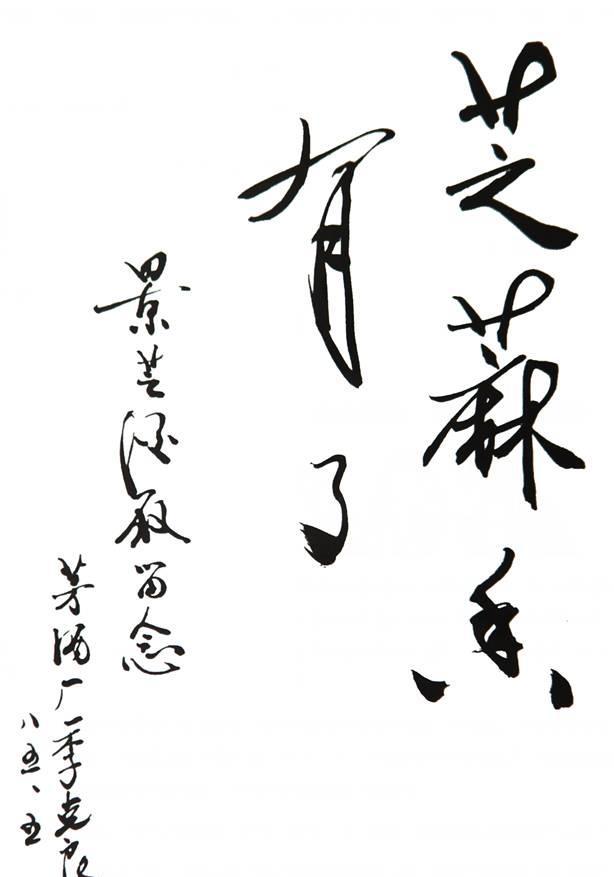 芝蔴香
有了
景芝酒厰留念
茅酒厂季克良
八五、五